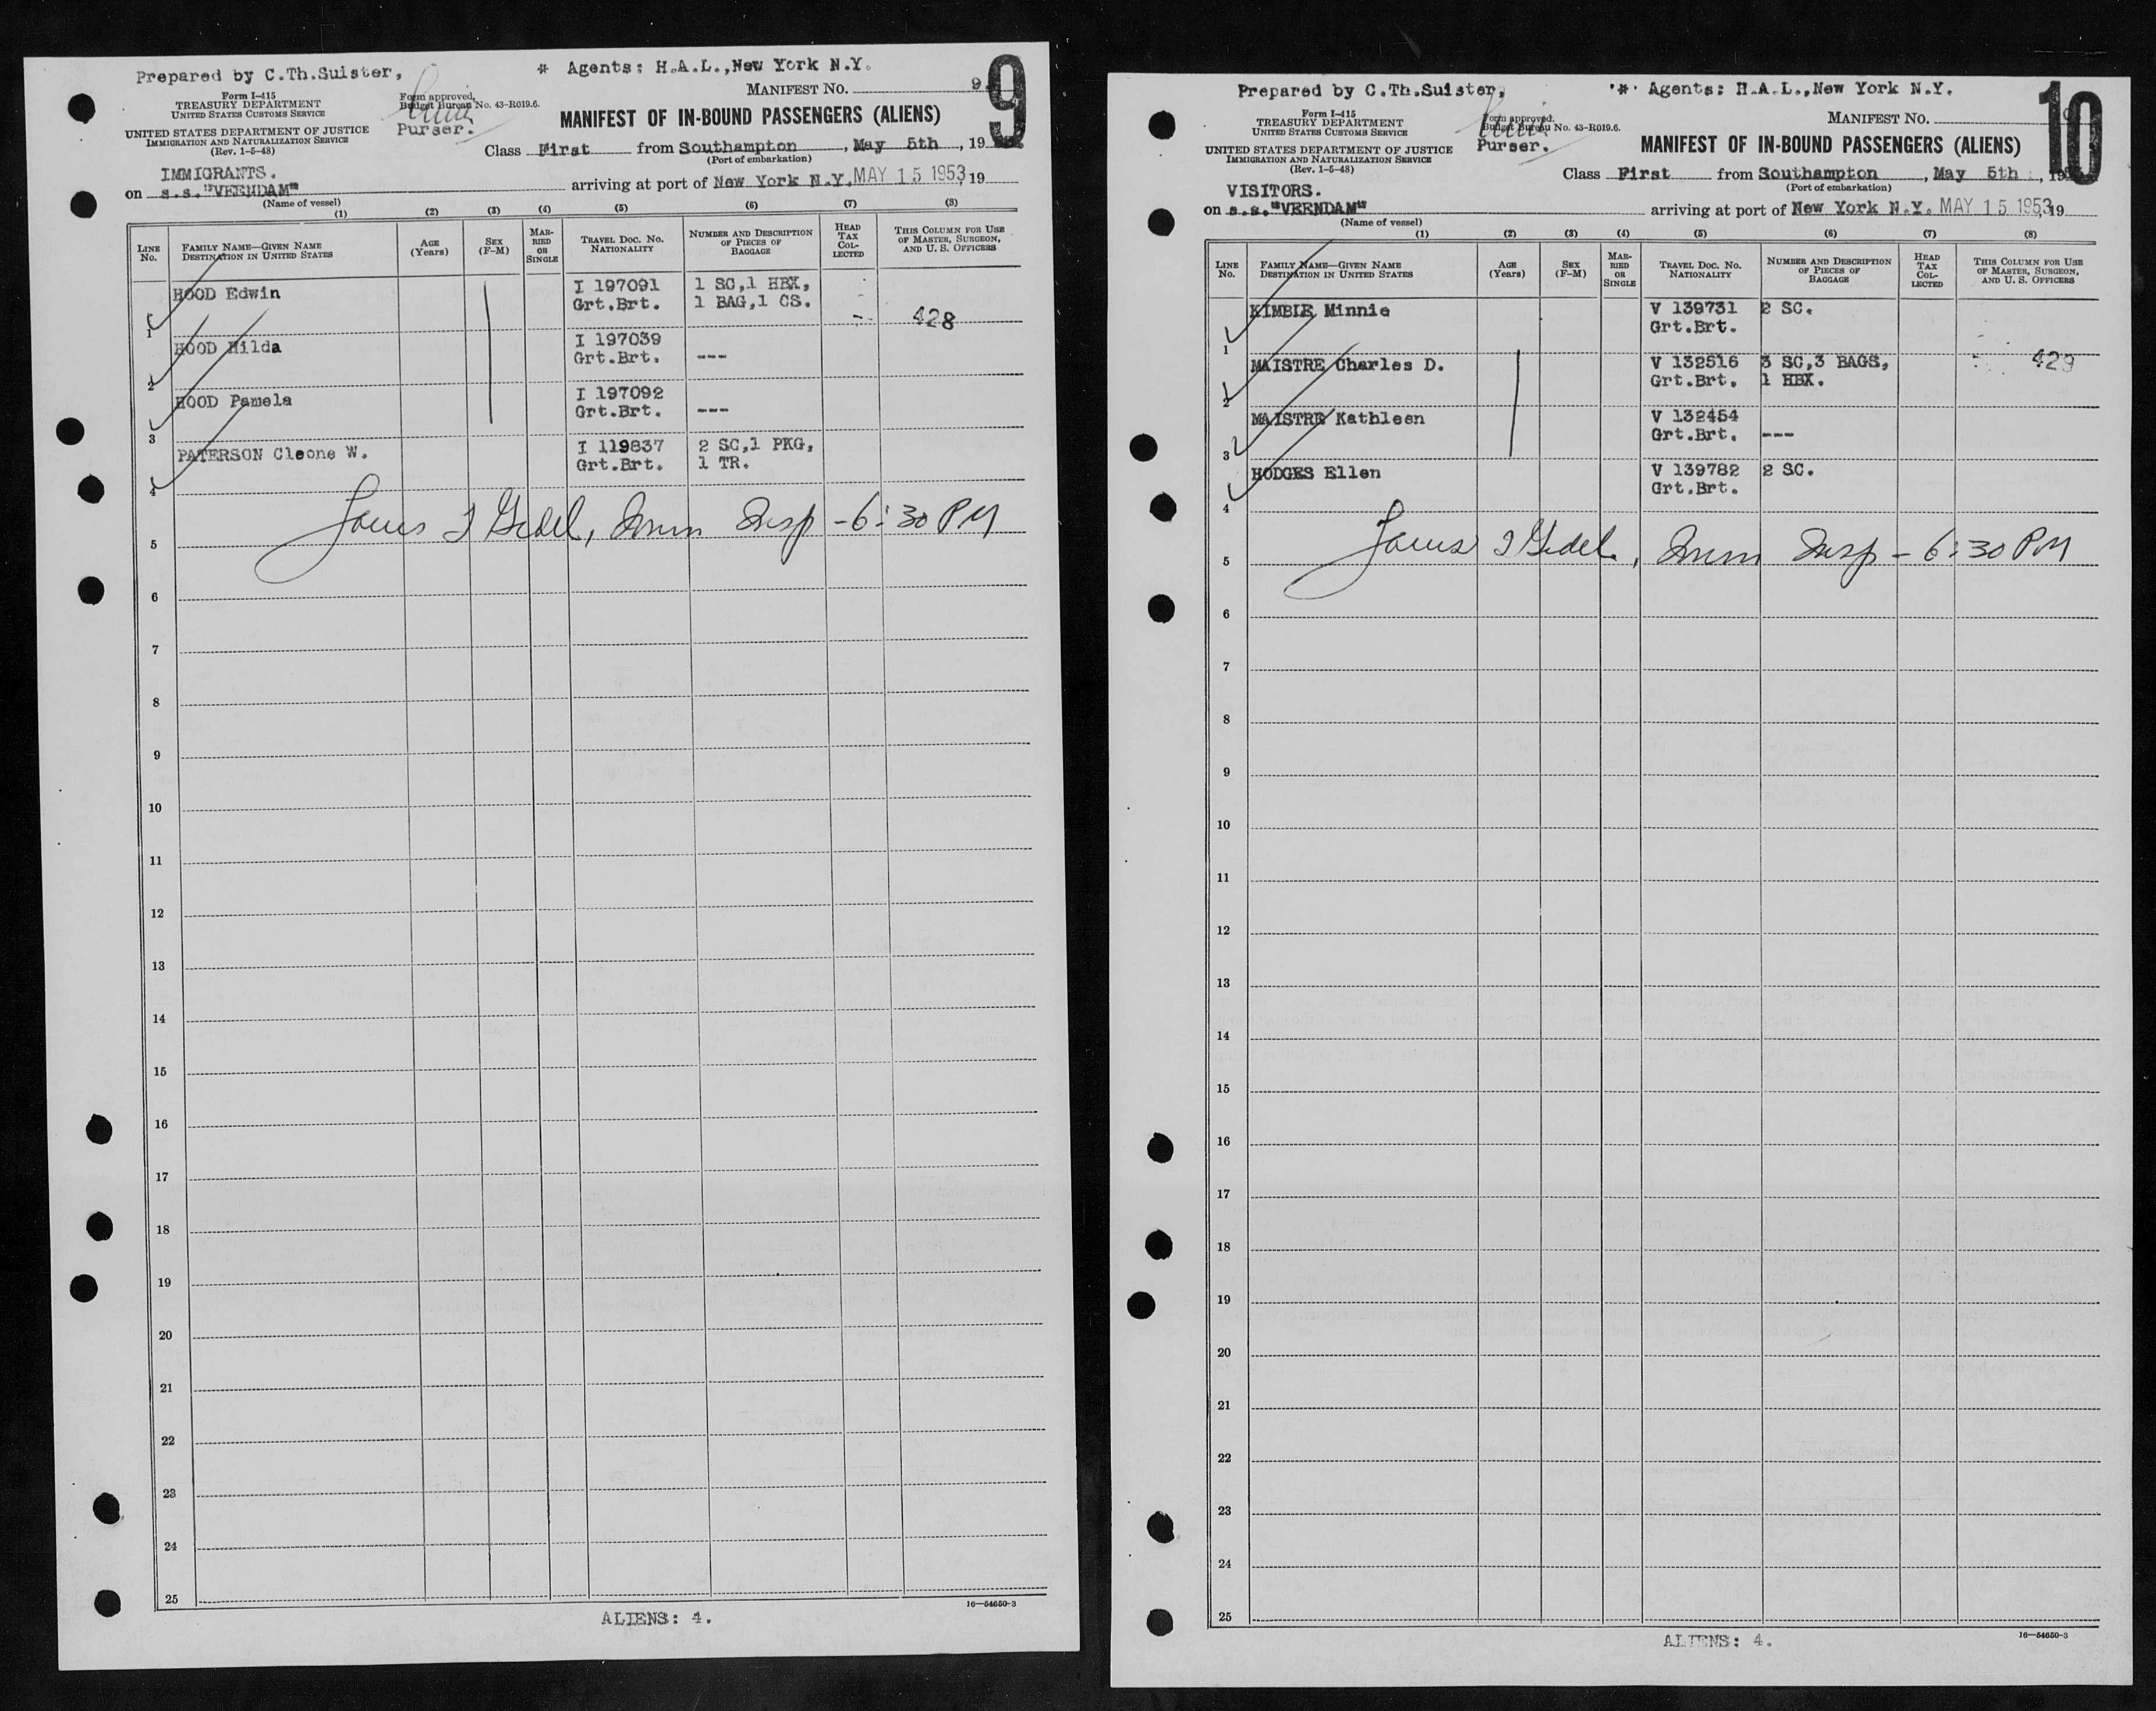 Prepared by C.Th.Suister,
* Agents: H.A.L.,New York N.Y.
9
Form I-415
TREASURY DEPARTMENT
UNITED STATES CUSTOMS SERVICE
Form approved.
Budget Bureau No. 43-R019.6.
Purser.
MANIFEST NO. 9
UNITED STATES DEPARTMENT OF JUSTICE
IMMIGRATION AND NATURALIZATION SERVICE
(Rev. 1-5-48)
MANIFEST OF IN-BOUND PASSENGERS (ALIENS)
Class First from Southampton, May 5th, 19
(Port of embarkation)
IMMIGRANTS.
on s.s."VEENDAM" arriving at port of New York N.Y. MAY 15 1953, 19
(Name of vessel)
(1) (2) (3) (4) (5) (6) (7) (8)
LINE No.
FAMILY NAME—GIVEN NAME
DESTINATION IN UNITED STATES
AGE (Years)
SEX (F-M)
MARRIED OR SINGLE
TRAVEL DOC. NO.
NATIONALITY
NUMBER AND DESCRIPTION OF PIECES OF BAGGAGE
HEAD TAX COLLECTED
THIS COLUMN FOR USE OF MASTER, SURGEON, AND U. S. OFFICERS
1 HOOD Edwin I 197091 1 SC,1 HBX,
Grt.Brt. 1 BAG,1 CS. 428
2 HOOD Hilda I 197039
Grt.Brt. ---
3 HOOD Pamela I 197092
Grt.Brt. ---
4 PATERSON Cleone W. I 119837 2 SC,1 PKG,
Grt.Brt. 1 TR.
Imm Insp - 6:30 PM
5
6
7
8
9
10
11
12
13
14
15
16
17
18
19
20
21
22
23
24
25
16—54650-3
ALIENS: 4.
Prepared by C.Th.Suister,
* Agents: H.A.L.,New York N.Y.
10
Form I-415
TREASURY DEPARTMENT
UNITED STATES CUSTOMS SERVICE
Form approved.
Budget Bureau No. 43-R019.6.
Purser.
MANIFEST NO.
UNITED STATES DEPARTMENT OF JUSTICE
IMMIGRATION AND NATURALIZATION SERVICE
(Rev. 1-5-48)
MANIFEST OF IN-BOUND PASSENGERS (ALIENS)
Class First from Southampton, May 5th, 19
(Port of embarkation)
VISITORS.
on s.s."VEENDAM" arriving at port of New York N.Y. MAY 15 1953, 19
(Name of vessel)
(1) (2) (3) (4) (5) (6) (7) (8)
LINE No.
FAMILY NAME—GIVEN NAME
DESTINATION IN UNITED STATES
AGE (Years)
SEX (F-M)
MARRIED OR SINGLE
TRAVEL DOC. NO.
NATIONALITY
NUMBER AND DESCRIPTION OF PIECES OF BAGGAGE
HEAD TAX COLLECTED
THIS COLUMN FOR USE OF MASTER, SURGEON, AND U. S. OFFICERS
1 KIMBLE Minnie V 139731 2 SC.
Grt.Brt.
2 MAISTRE Charles D. V 132516 3 SC,3 BAGS, 429
Grt.Brt. 1 HBX.
3 MAISTRE Kathleen V 132454
Grt.Brt. ---
4 HODGES Ellen V 139782 2 SC.
Grt.Brt.
Imm Insp - 6:30 PM
5
6
7
8
9
10
11
12
13
14
15
16
17
18
19
20
21
22
23
24
25
16—54650-3
ALIENS: 4.